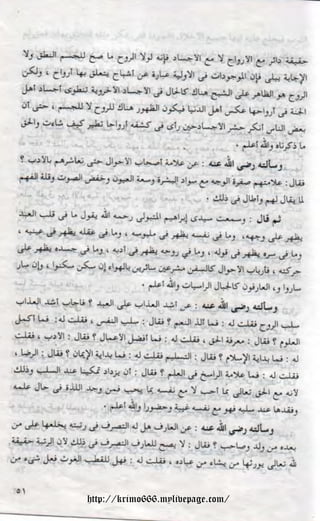 حقيقة دائر مع الأرواح لا مع الأجساد فإنه لولا الروح ما صح للجسم النطق ولا
الإجابة ببلى فإن الموجودات فى الأولية عبارة عن أشباح يتعلق بها أرواح ، ولكن ،
الروح هو الظاهر على الشبح هناك كالحال فى الأجساد الأخروية تنطوى أجساد أهل
الجنة فى أرواحها عكس أهل الدنيا فيكون الظهور هناك للروح لا للجسم ، حتى أن
بعض الناس أنكر حشر الأجساد حين رأى فى كشفه أرواحا تطير كيف شاءت والحق
ما ذكرناه والله أعلم .
وسألته رضى الله عنه : عن علامة أصحاب الأحوال حتى نعاشرهم بالأدب ؟
فقال : علامتهم صفرة الوجه مع سواد البشرة وسعة العيون وخفض الصوت وقلة الفهم
لما يقال لهم وأطال فى ذلك .
ثم قال : وسمعت سيدى إبراهيم المتبولى رحمه الله يقول ما فى قلب العبد
يظهر على وجهه ، وما فى نفسه يظهر فى ملبوسه ، وما فى عقله يظهر فى عينيه ،
وما فى سره يظهر فى قوله ، وما فى روحه يظهر فى أدبه ، وما فى جسده يظهر على
حركته ، فأرباب الأحوال كالسفن سائرين بالهواء إن سكن سكنوا ، وإن سار
ساروا ، والعارفون كالجبال الراسيات والله أعلم .
وسألته رضى الله عنه : عن أشد العذاب على العبد ؟ فأجاب أشد العذاب
سلب الروح فقلت له : فما ألذ النعم ؟ فقال : سلب النفس ، فقلت له : فما أكمل
العلوم ؟ فقال : معرفة الحق ، فقلت له : فما أفضل الأعمال ؟ فقال : الأدب ، فقلت
له : فما بداية الإسلام ؟ فقال : التسليم فقلت له : فما بداية الإيمان ؟ فقال : الرضا ،
فقلت له : فما علامة الراسخ فى العلم ؟ فقال : أن يزداد تمكينا عند السلب وذلك
لأنه مع الحق تعالى بما أحب لا مع نفسه بما يحب فمن وجد اللذة فى حال علمه
وفقدها عند سلبه فهو مع نفسه غيبة وحضورا والله أعلم .
وسألته رضى الله عنه : عن العارف هل له التصرف فى رتبته يخلعها على من
بعده من ولد وصاحب ؟ فقال : لا يصح للعارف التصرف فى ذلك لأن الرتبة حقيقة
لله تعالى يورثها من يشاء من عباده ، فقلت له : فهل للقطب الغوث فعل شىء من
٥١
http://krimo666.mylivepage.com/